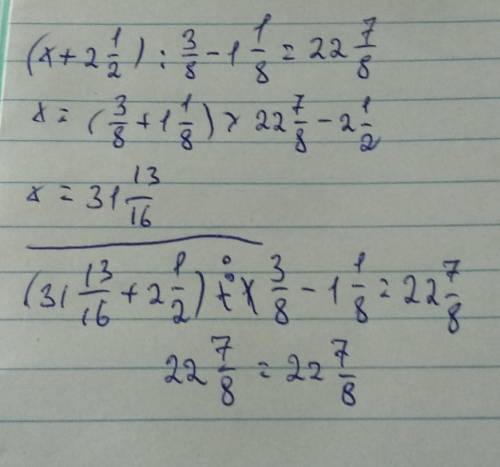 (x + 2 1/2) : 3/8 - 1 1/8 = 22 7/8
x = (3/8 + 1 1/8) × 22 7/8 - 2 1/2
x = 31 13/16
(31 13/16 + 2 1/2) : 3/8 - 1 1/8 = 22 7/8
22 7/8 = 22 7/8